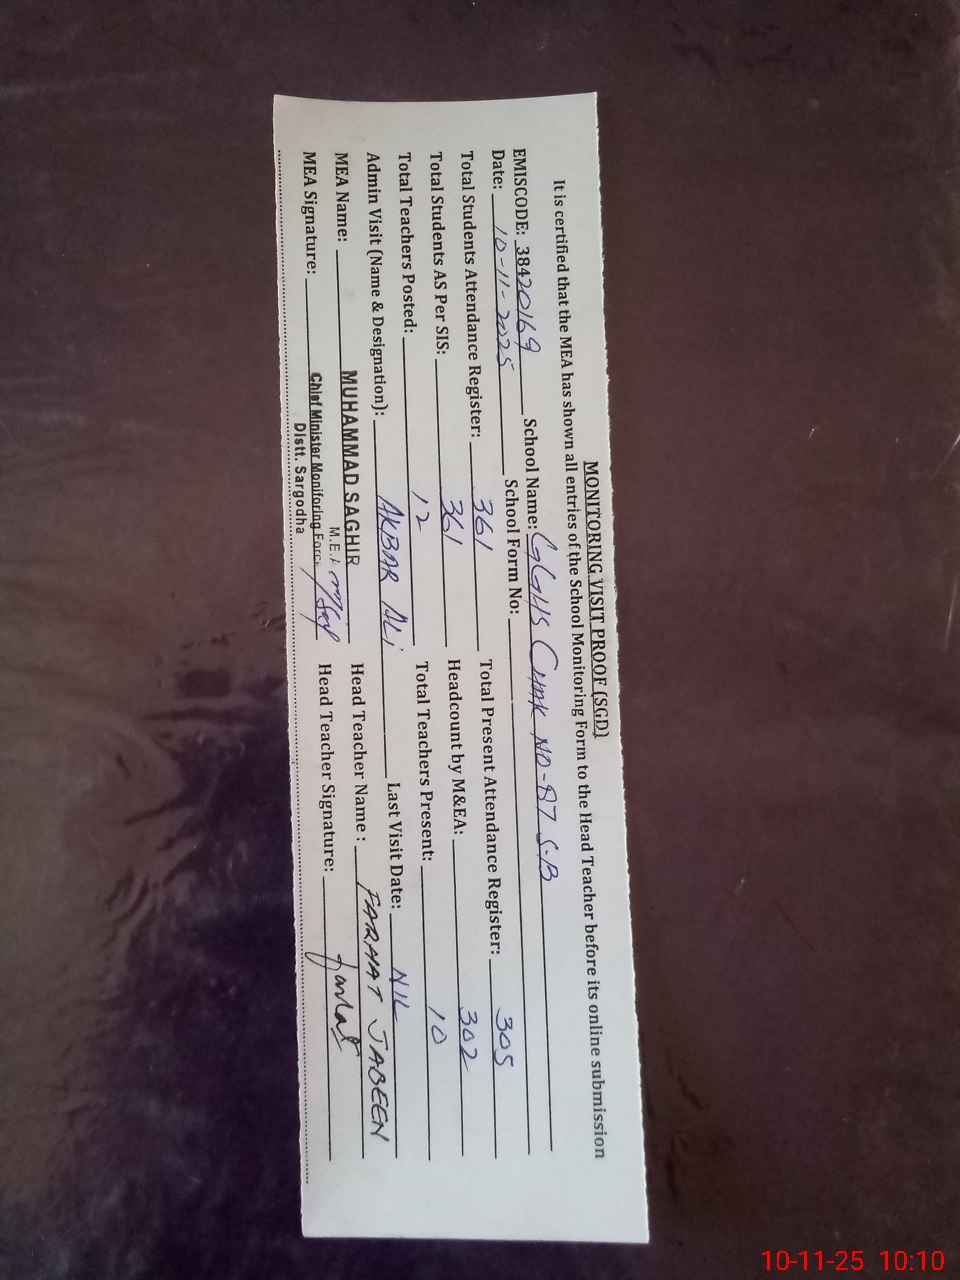 MONITORING VISIT PROOF (SGD)
It is certified that the MEA has shown all entries of the School Monitoring Form to the Head Teacher before its online submission
EMISCODE: 38420169 School Name: GGHS CHAK NO-87 S.B
Date: 10-11-2025 School Form No:
Total Students Attendance Register: 361 Total Present Attendance Register: 305
Total Students AS Per SIS: 361 Headcount by M&EA: 302
Total Teachers Posted: 12 Total Teachers Present: 10
Admin Visit (Name & Designation): AKBAR ALi Last Visit Date: NIL
MEA Name: MUHAMMAD SAGHIR Head Teacher Name : FARHAT JABEEN
M.E.A
MEA Signature: Chief Minister Monitoring Force Head Teacher Signature: Farhat
Distt. Sargodha
10-11-25 10:10